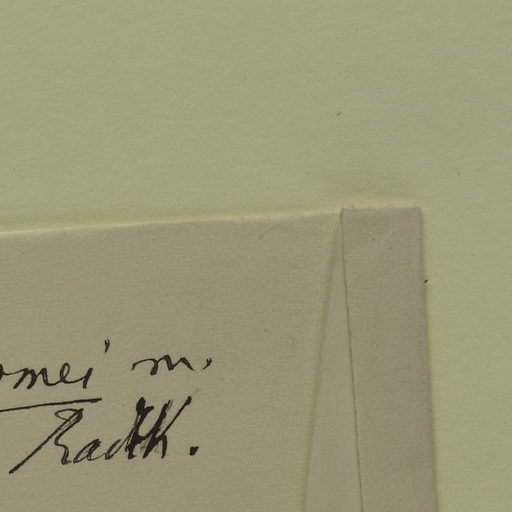 omei m.
Radlk.